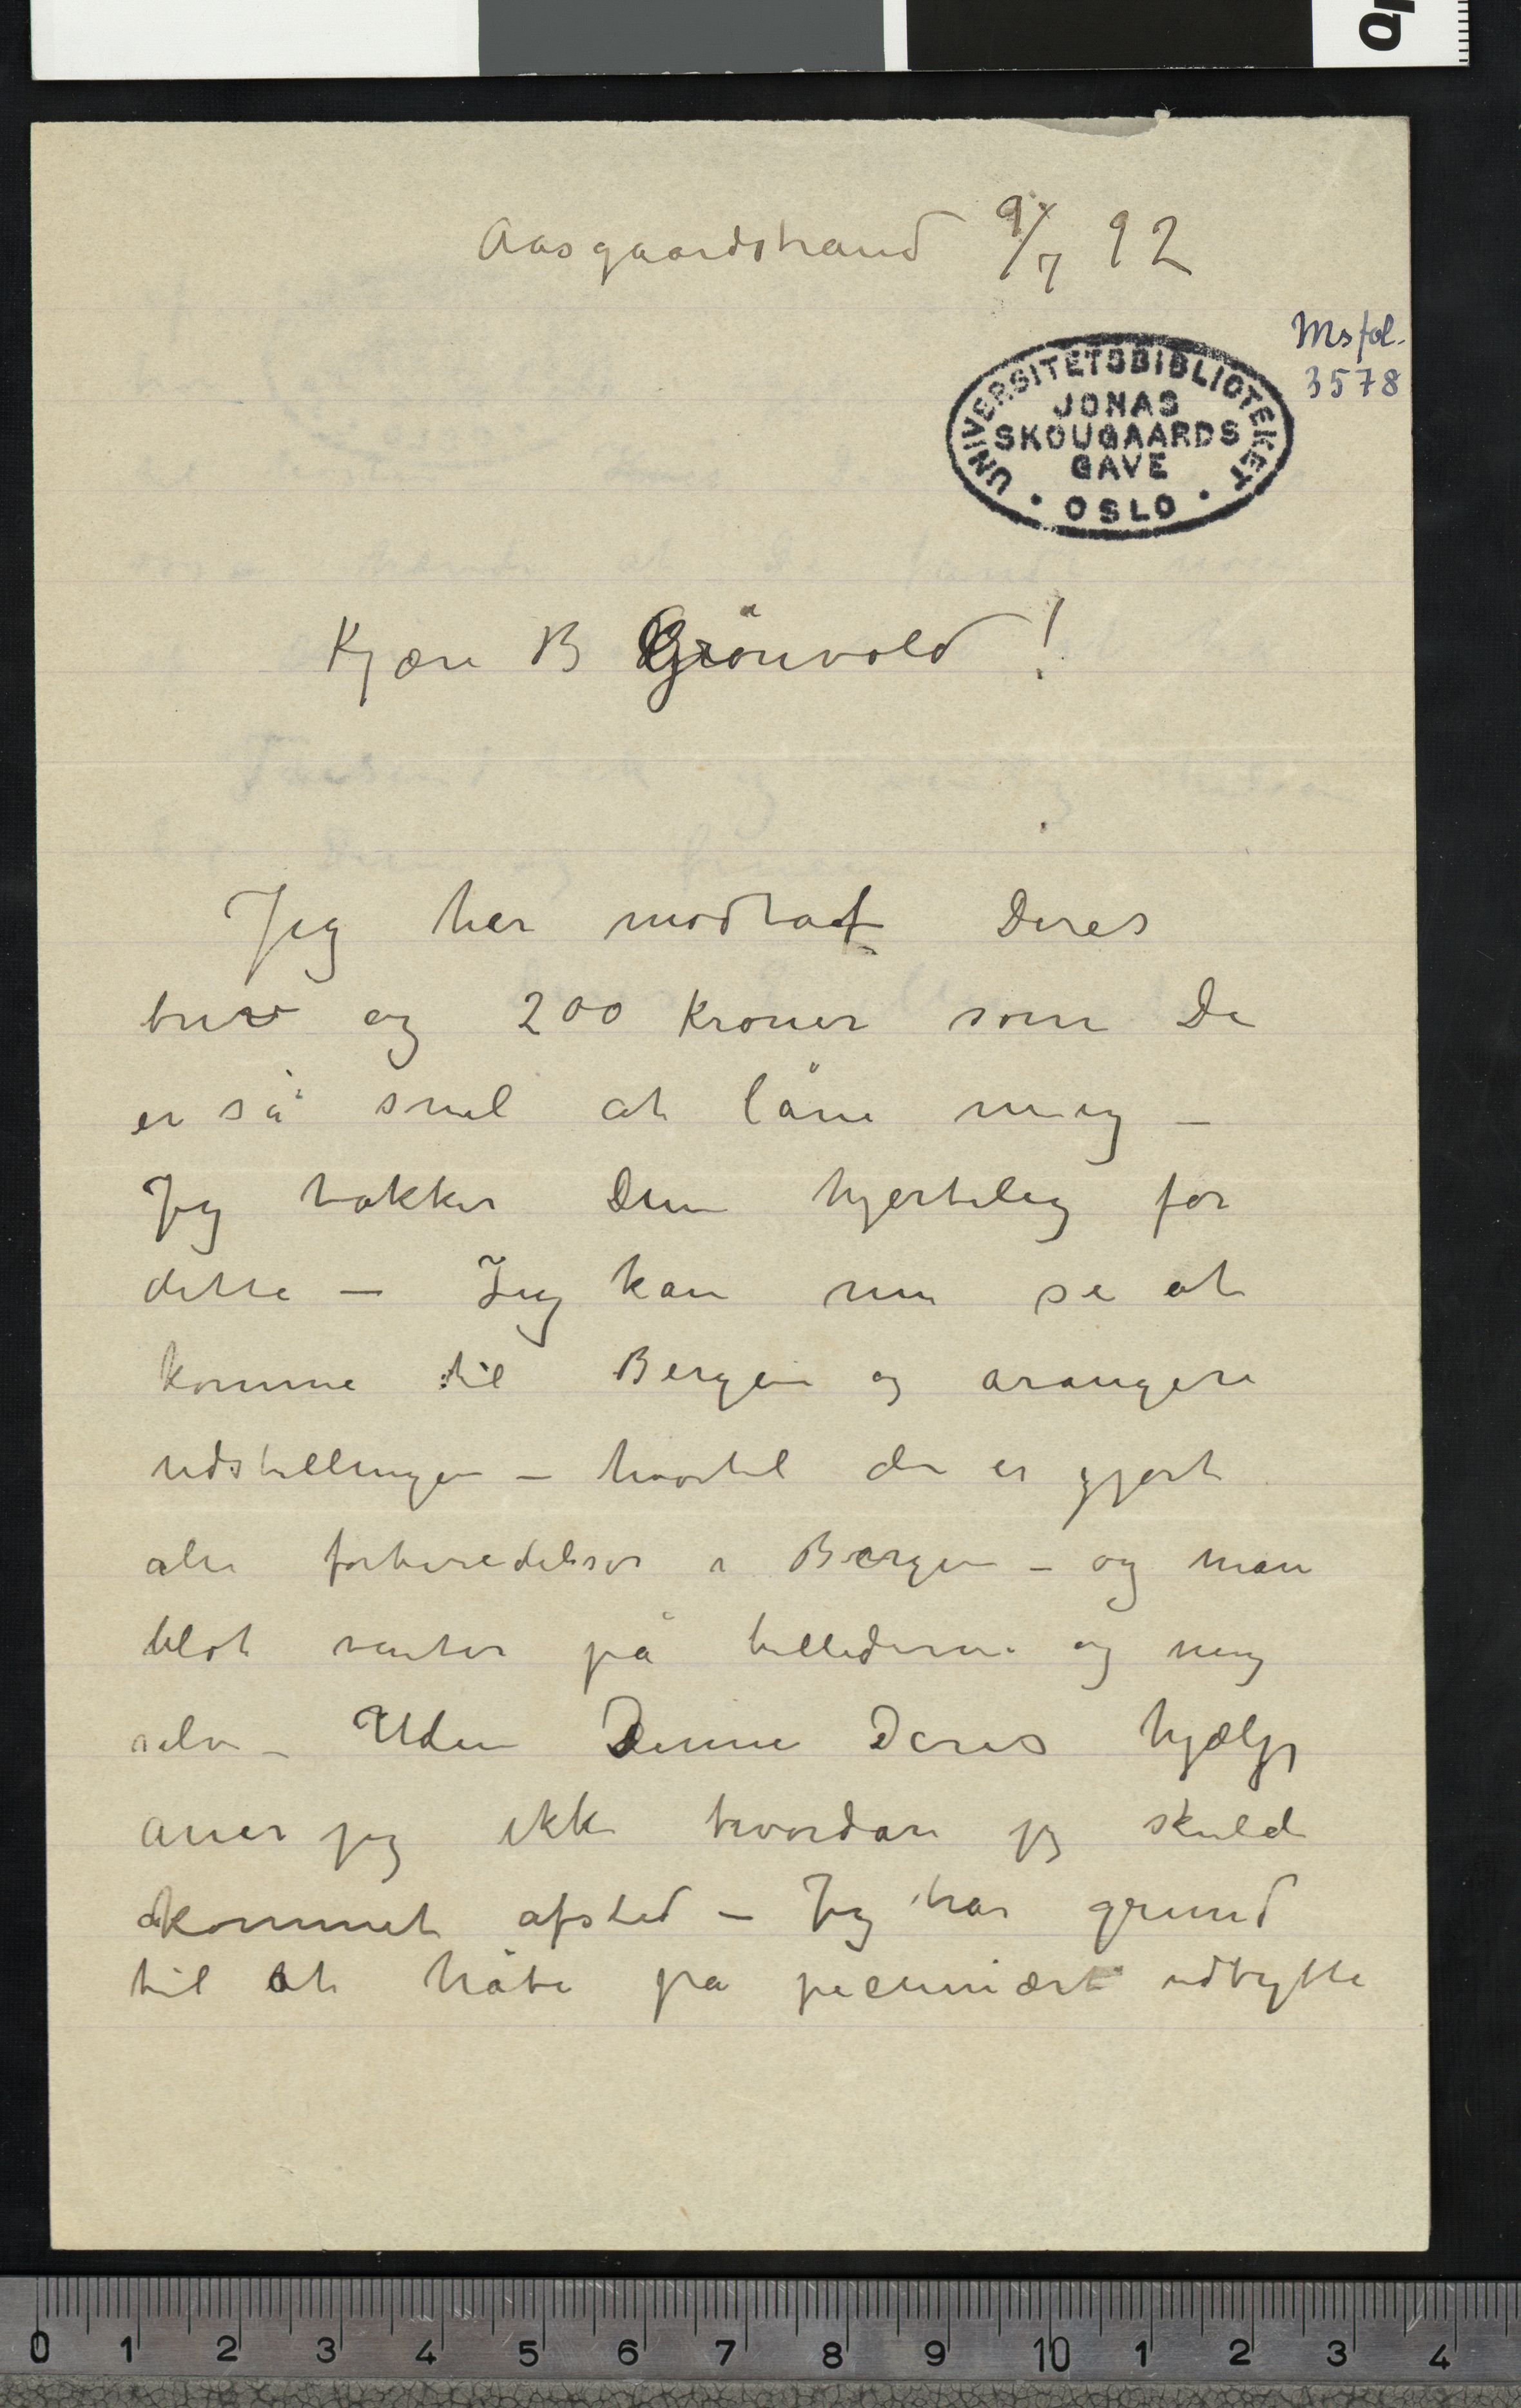 Aasgaardstrand 9/7 92
Msfol.
3578
UNIVERSITETSBIBLIOTEKET
JONAS
SKOUGAARDS
GAVE
OSLO
Kjære B Grönvold!
Jeg har modtaet Deres
brev og 200 kroner som De
er så snil at låne meig –
Jeg takker Dem hjerteleg for
dette – Jeg kan nu se at
komme til Bergen og arangere
udstellingen – hvortil der er gjort
alle forberedelser i Bergen – og man
blot venter på billederne og meg
selv – Uden Denne Deres hjælp
aner jeg ikke hvordan jeg skulde
kommet afsted – Jeg har grund
til at håbe på pecuniært udbytte
0 1 2 3 4 5 6 7 8 9 10 1 2 3 4